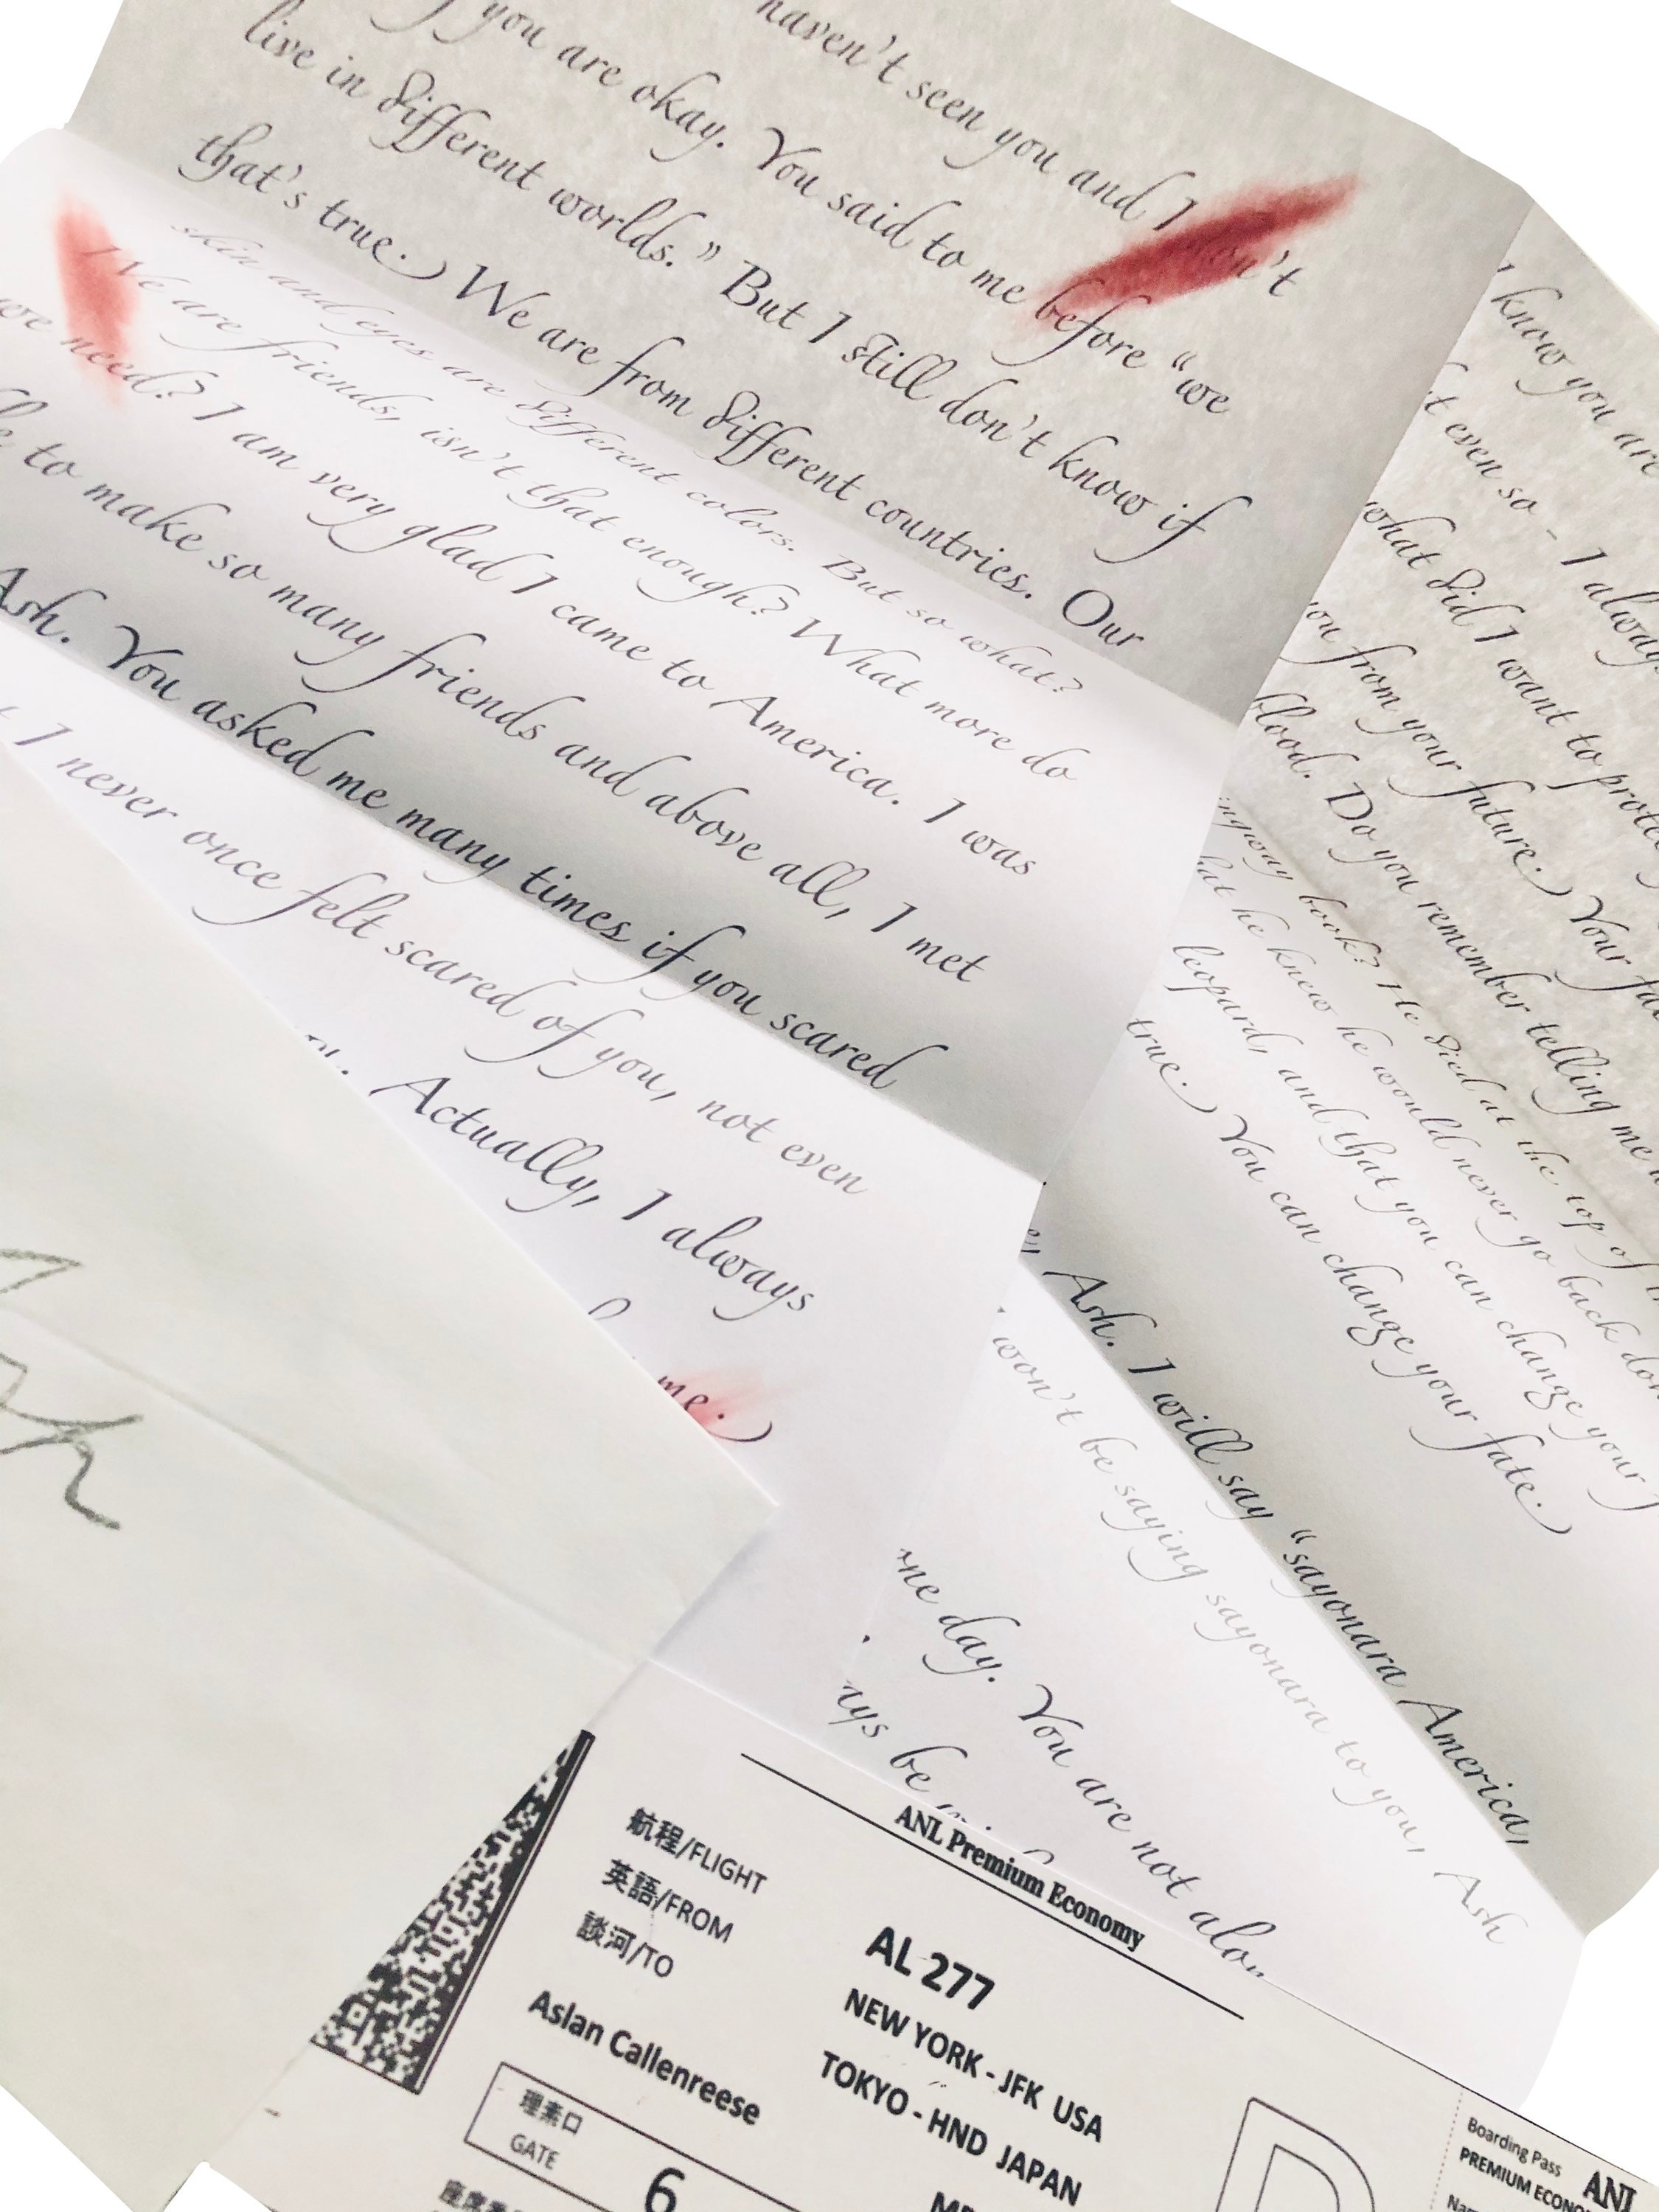 haven't seen you and I
you are okay. You said to me before "we
live in different worlds." But I still don't know if
that's true. We are from different countries. Our
skin and eyes are different colors. But so what?
We are friends, isn't that enough? What more do
we need? I am very glad I came to America. I was
to make so many friends and above all, I met
Ash. You asked me many times if you scared
I never once felt scared of you, not even
Actually, I always
me.
I know you are
t even so - I always
what did I want to protect
you from your future. Your
blood. Do you remember telling me
book? He died at the top of
hat he knew he would never go back
leopard, and that you can change your
true. You can change your fate.
Ash. I will say "sayonara America,
won't be saying sayonara to you, Ash
ne day. You are not
ys be
Ash
ANL Premium Economy
航程/FLIGHT AL 277
英語/FROM NEW YORK - JFK USA
談河/TO TOKYO - HND JAPAN
Aslan Callenreese
理素口
GATE 6
Boarding Pass ANL
PREMIUM ECONO